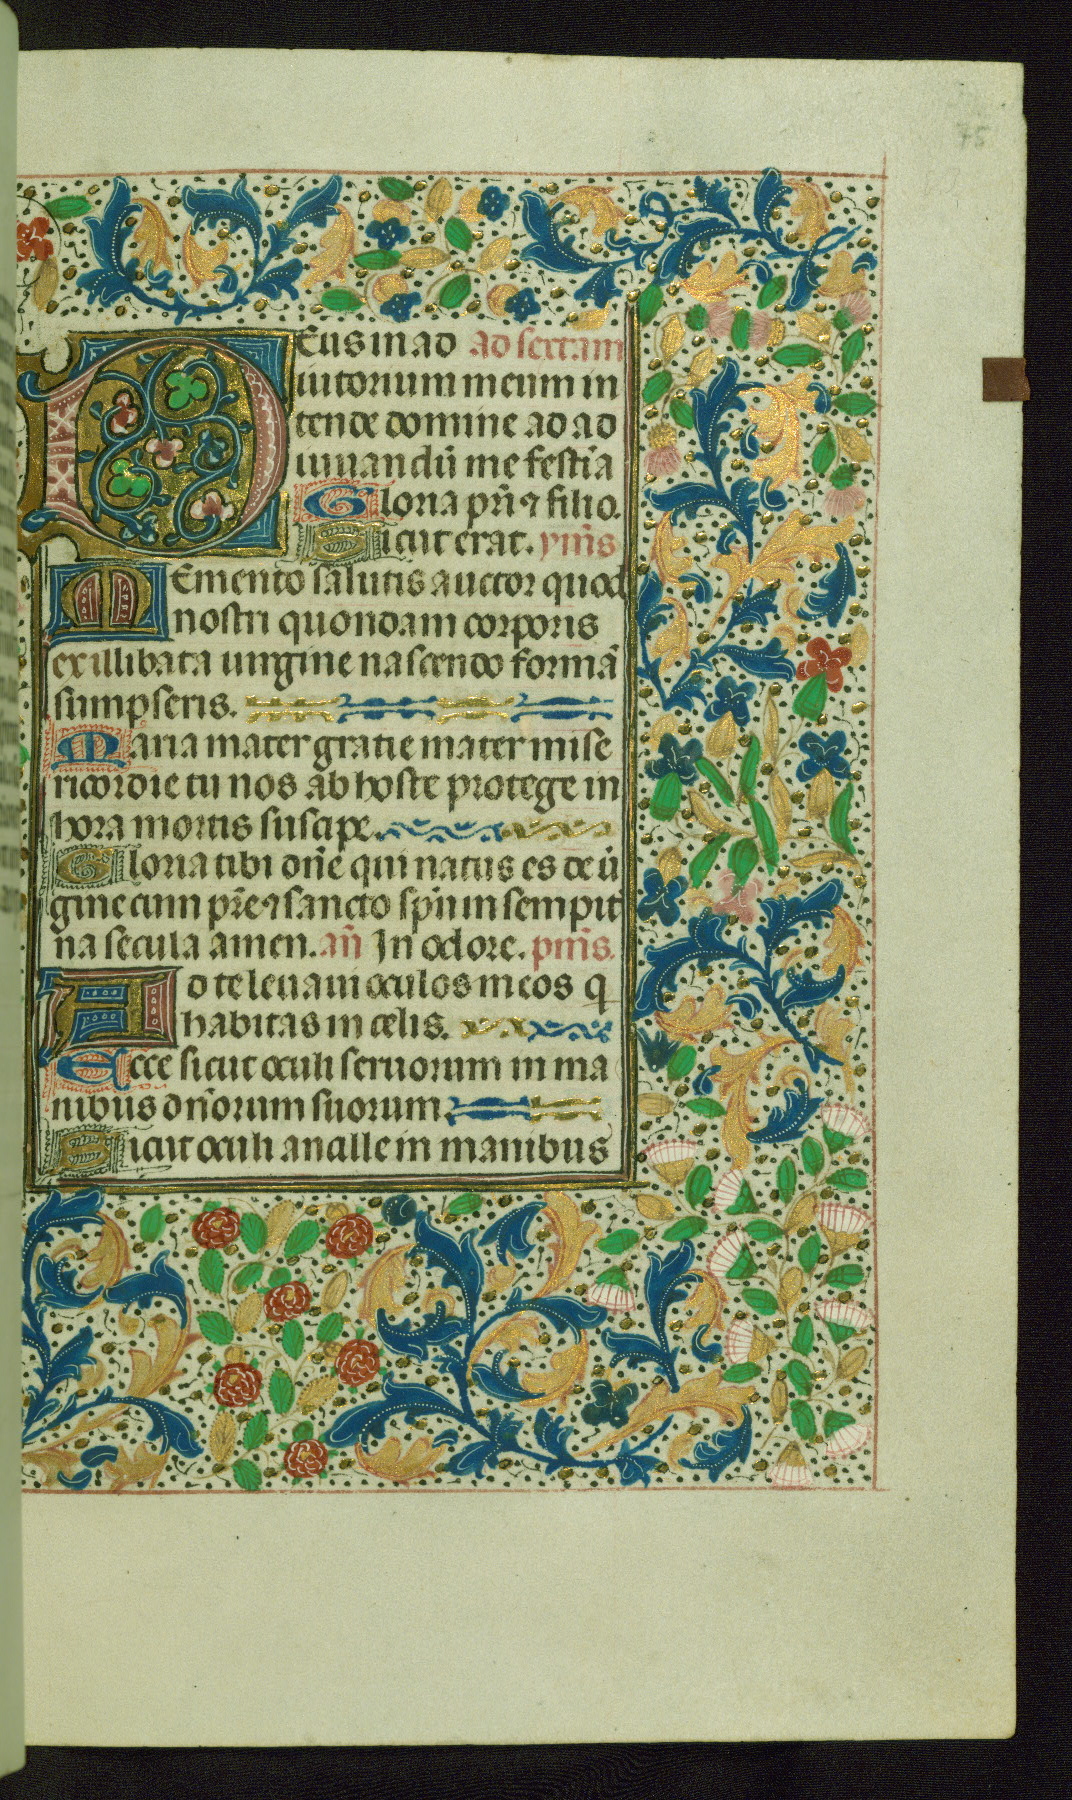 75
Deus in ad ad sextam
iutorium meum in
tende domine ad ad
iuuandū me festīa
Gloria pr̄i ⁊ filio.
Sicut erat. ym̄s
Memento salutis auctor quod
nostri quondam corporis
ex illibata uirgine nascendo formā
sumpseris.
Maria mater gratie mater mise
ricordie tu nos ab hoste protege in
hora mortis suscipe.
Gloria tibi dn̄e qui natus es de ū
gine cum pr̄e ⁊ sancto sp̄u in sempit̄
na secula amen. an̄ In odore. pm̄s.
Ad te leuaui oculos meos q
habitas in celis.
Ecce sicut oculi seruorum in ma
nibus dn̄orum suorum.
Sicut oculi ancille in manibus